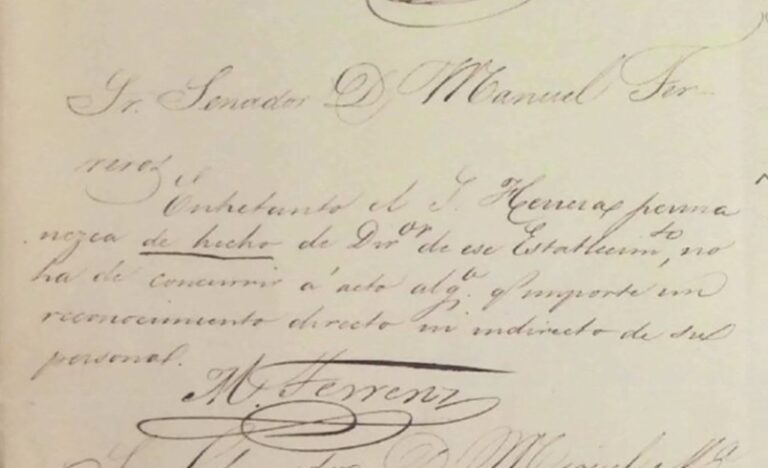 Sr. Senador D. Manuel Fer-
reros
Entretanto el S. Herrera perma
nezca de hecho de Dir.or de ese Establecim.to, no
ha de concurrir á acto alg.o q.e importe un
reconocimiento directo ni indirecto de su
personal.
M. Ferreros
S. Senador D. Manuel